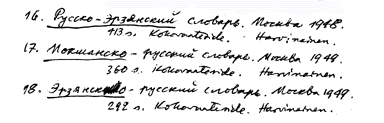 16. Русско-эрзянский словарь. Москва 1948.
413 s. Kokonahteide. Harvinainen.
17. Мокшанско-русский словарь. Москва 1949.
360 s. Kokonahteide. Harvinainen.
18. Эрзянско-русский словарь. Москва 1949.
292 s. Kokonahteide. Harvinainen.